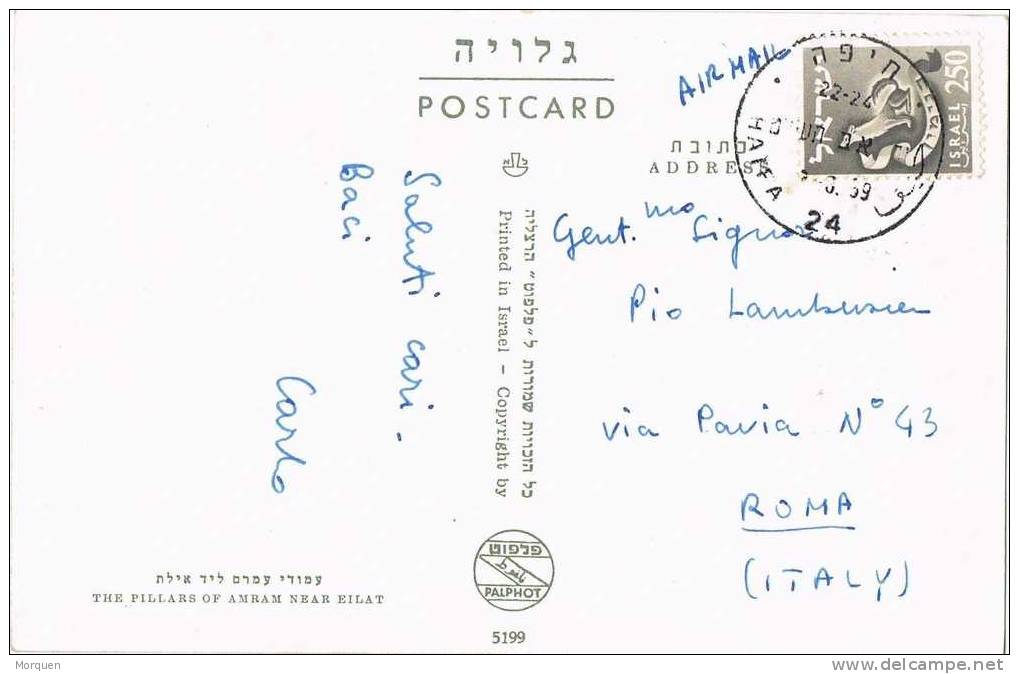 גלויה
POSTCARD
AIR MAIL
כתובת
ADDRESS
חיפה
22-24
HAIFA
24
ישראל
ISRAEL
250
Saluti cari.
Baci
Carlo
Gent.mo Signor
Pio
via Pavia N° 43
ROMA
(ITALY)
כל הזכויות שמורות ל״פלפוט״ הרצליה
Printed in Israel - Copyright by
פלפוט
PALPHOT
5199
עמודי עמרם ליד אילת
THE PILLARS OF AMRAM NEAR EILAT
Morquen
www.delcampe.net